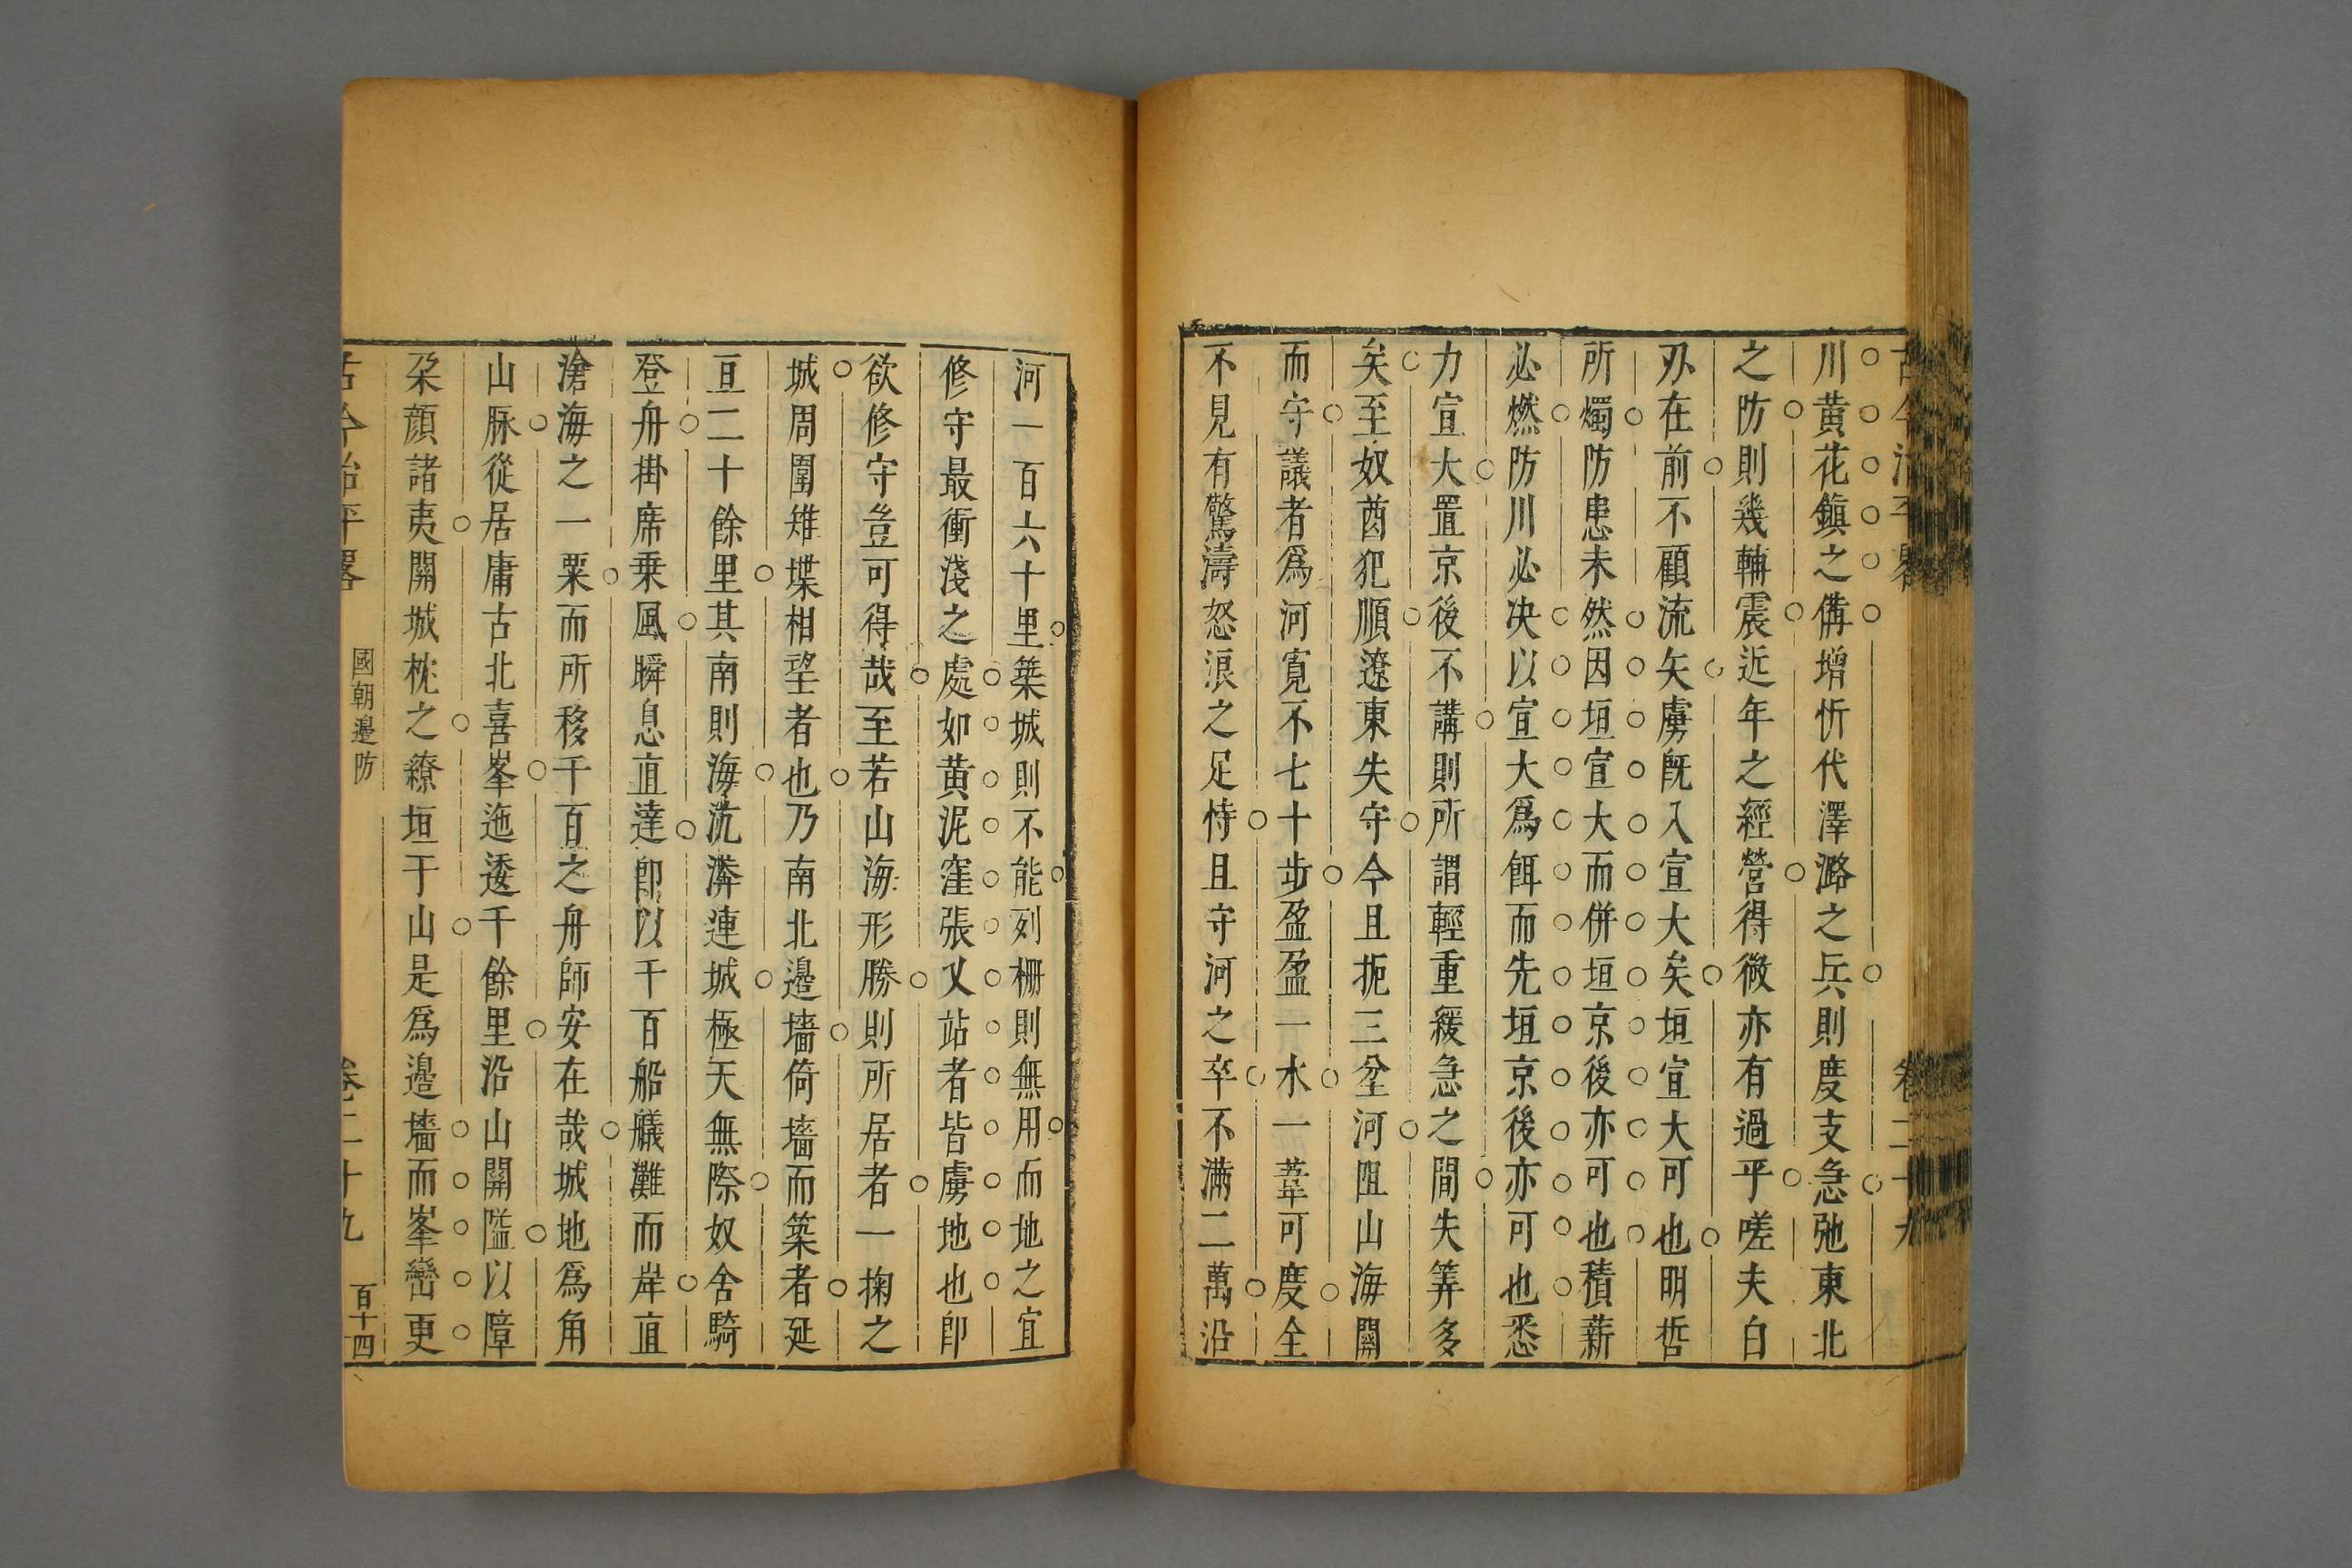 川黃花鎮之備增忻代澤潞之兵則度支急弛東北
之防則幾輔震近年之經營得微亦有過乎嗟夫白
刅在前不顧流矢矢虜既入宣大矣垣宣大可也明哲
所燭防患未然因垣宣大而併垣京後亦可也積薪
必燃防川必決以宣大爲餌而先垣京後亦可也悉
力宣大置京後不講則所謂輕重緩急之間失筭多
矣至奴酋犯順遼東失守今且扼三坌河阻山海關
而守議者爲河寬不七十步盈盈一水一葦可度全
不見有驚濤怒浪之足恃且守河之卒不滿二萬沿
河一百六十里築城則不能列柵則無用而地之宜
修守最衝淺之處如黃泥窪張乂站者皆虜地也卽
欲修守豈可得哉至若山海形勝則所居者一掬之
城周圍雉堞相望者也乃南北邊墻倚墻而築者延
亘二十餘里其南則海沆漭連城極天無際奴舍騎
登舟掛席乗風瞬息直達卽以千百船艤灘而岸直
滄海之一粟而所移千百之舟師安在哉城地爲角
山脉從居庸古北喜峯迤逶千餘里沿山關隘以障
朶顔諸夷關城枕之繚垣于山是爲邊墻而峯巒更
古今治平畧
國朝邊防
卷二十九
百十四